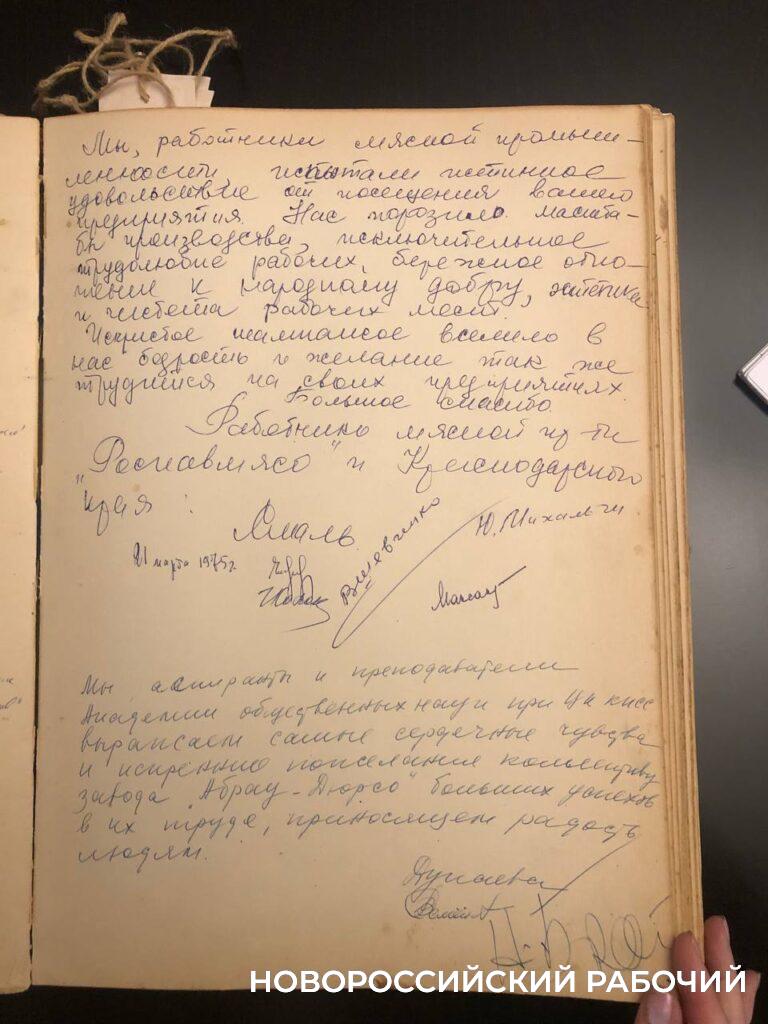 Мы, работники мясной промыш-
ленности, испытали истинное
удовольствие от посещения вашего
предприятия. Нас поразило масшта-
бы производства, исключительное
трудолюбие рабочих, бережное отно-
шение к народному добру, эстетика
и чистота рабочих мест.
Искристое шампанское вселило в
нас бодрость и желание так же
трудиться на своих предприятиях.
Большое спасибо.
Работники мясной пр-ти
"Росглавмясо" и Краснодарского
края:
21 марта 1975г.
Вишевчино
Ю. Михальчи
Мы, аспиранты и преподаватели
Академии общественных наук при ЦК КПСС
выражаем самые сердечные чувства
и искренние пожелания коллективу
завода "Абрау-Дюрсо" больших успехов
в их труде, приносящем радость
людям.
Дунаева
НОВОРОССИЙСКИЙ РАБОЧИЙ